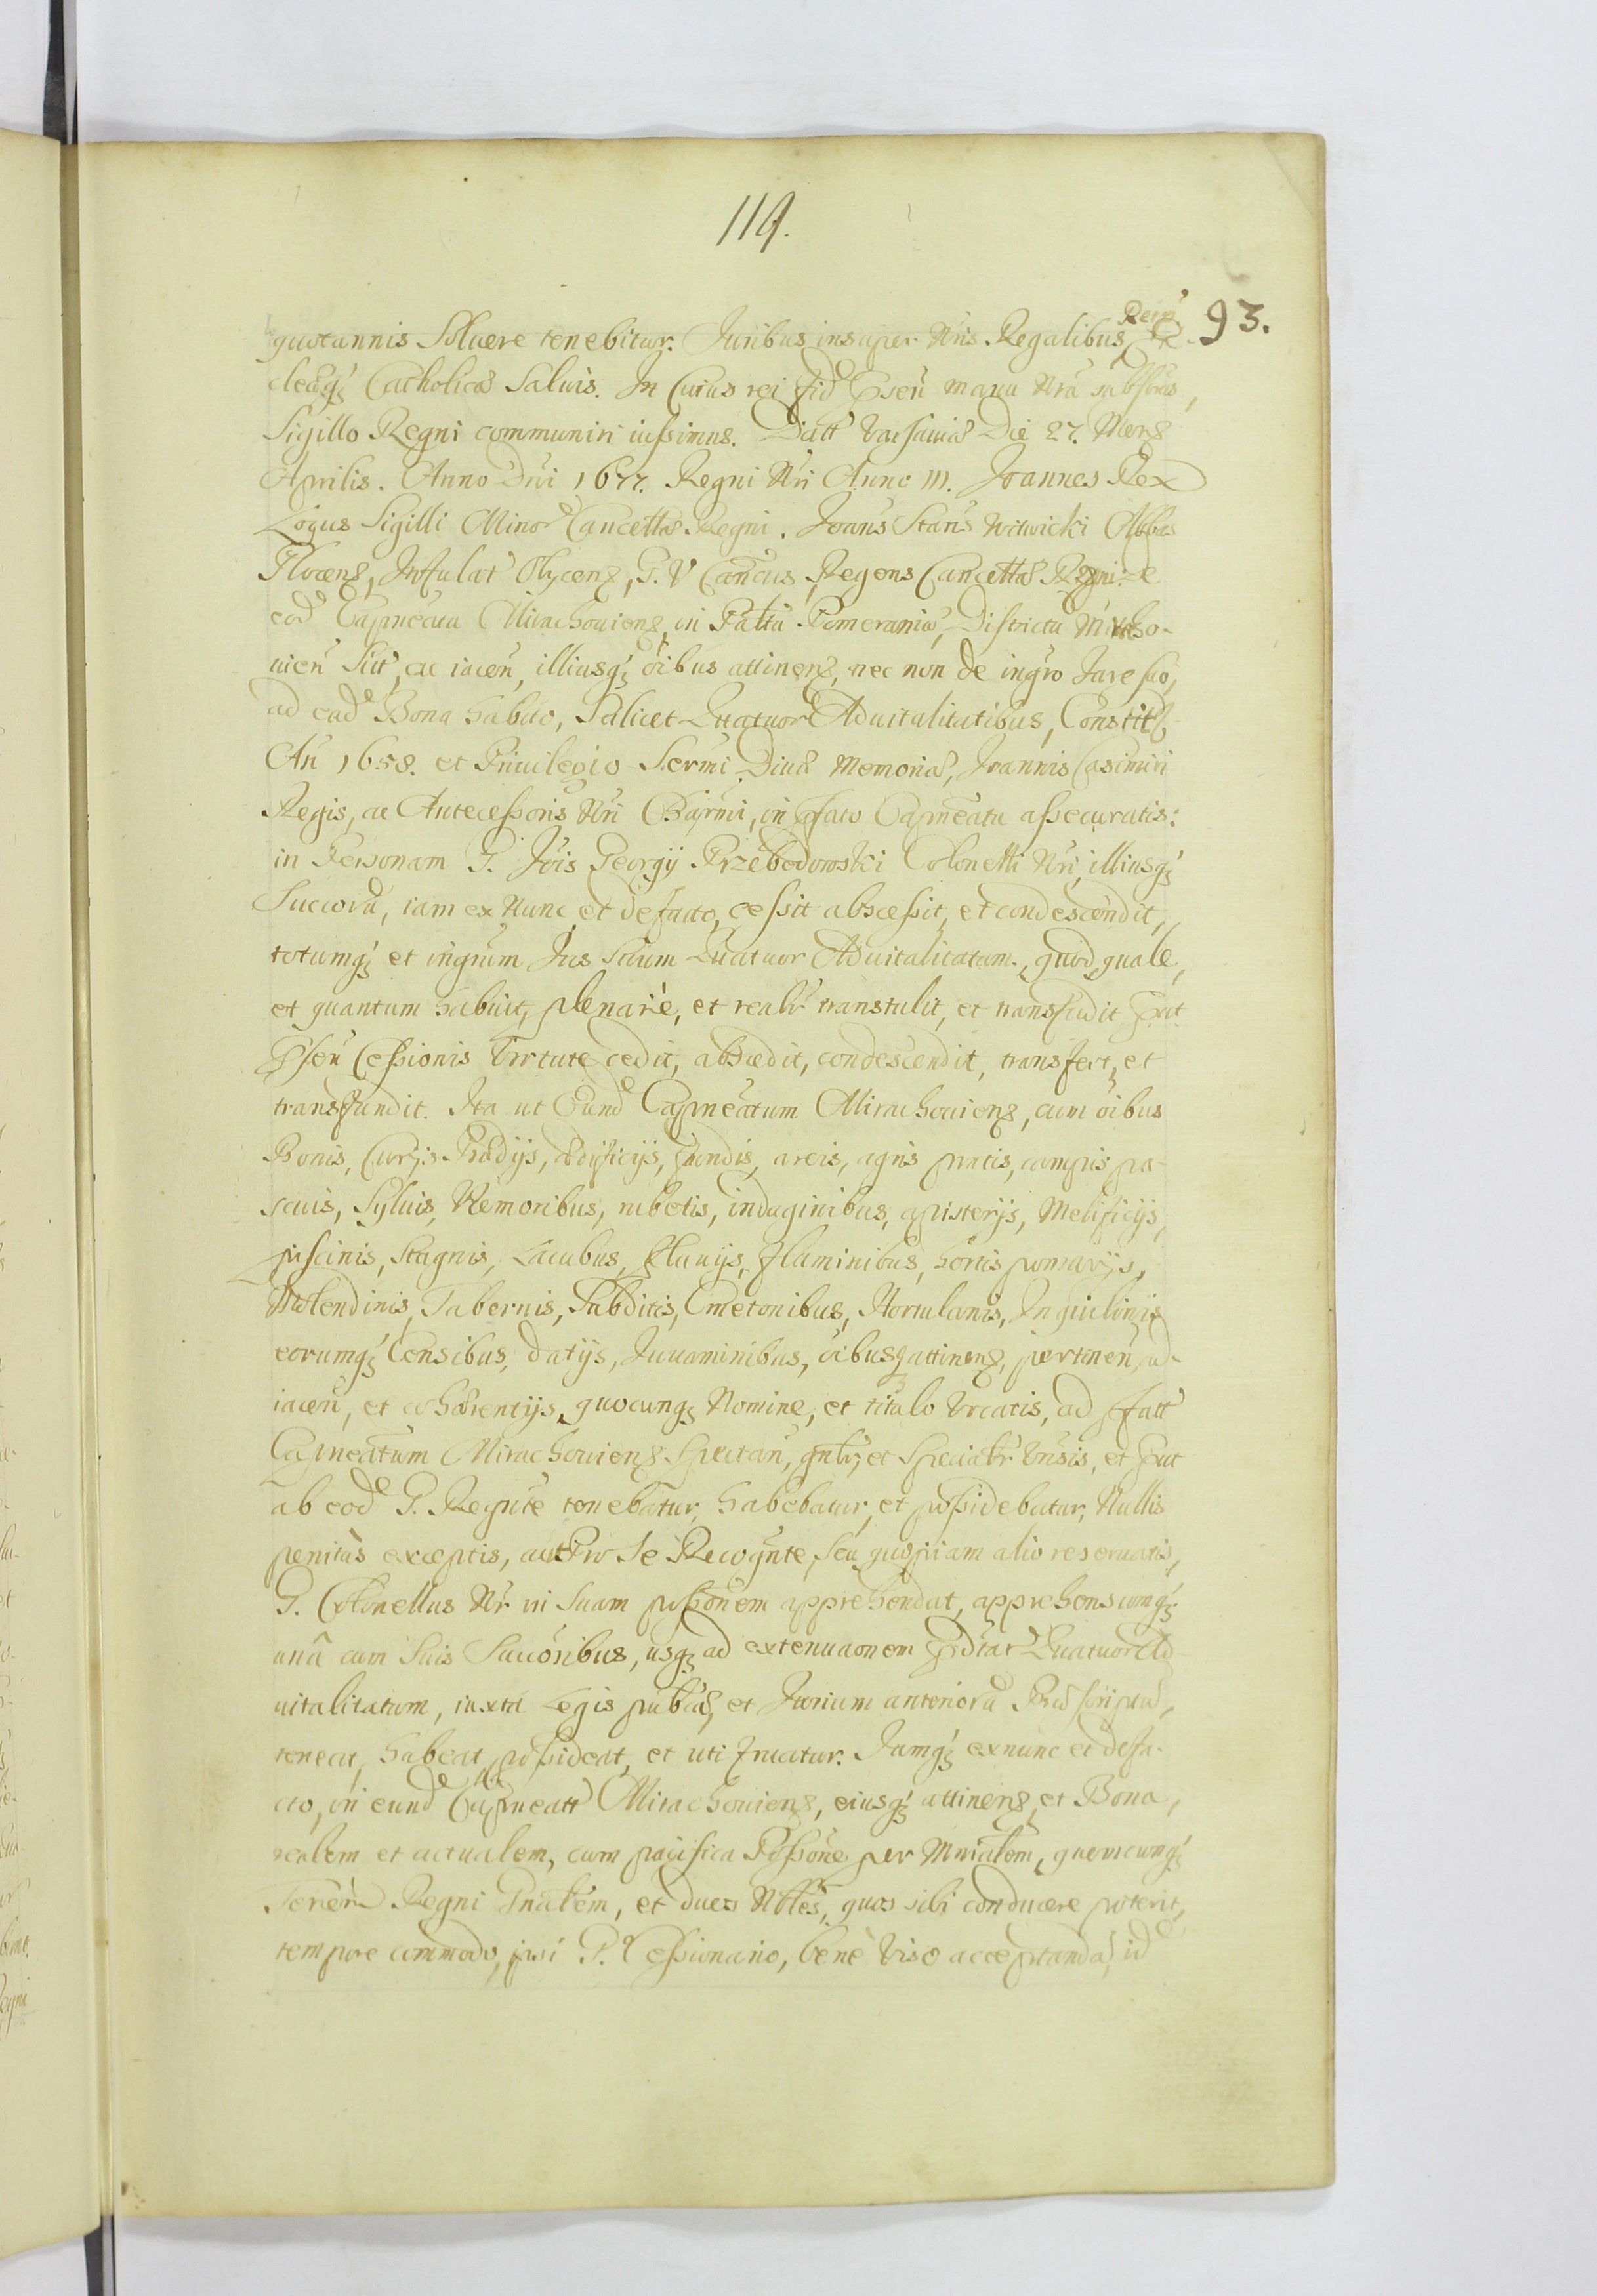 119.
93.
Reip.
quotannis Soluere tenebitur. Iuribus insuper Nris Regalibus, Ec-
clesiaeq; Catholicae Saluis. In Cuius rei fid Psen manu Nra subscrus,
Sigillo Regni communiri iussimus. Datt Varsauiae Die 27. Mens
Aprilis. Anno Dni 1677. Regni Nri Anno III. Joannes Rex
Locus Sigilli Minor Cancellae Regni. Joans Stans Witwicki Abbas
Plocens, Infulat Olycens, G. V Cancus, Regens Cancellae Regni: de
eod Capneatu Mirachouiens, in Pallu Pomeraniae, Districtu Miracho-
uien Sit, ac iacen, illiusq; oibus attinens, nec non de ingro Jure suo,
ad ead Bona habito, Salicet Quatuor Aduitalitatibus, Constit
An 1658. et Priuilegio Sermi Diuae Memoriae, Joannis Casimiri
Regis, ac Antecessoris Nri Charmi, in pfato Capneatu assecuratis:
in Personam G. Jois Georgij Przebedowski Colonelli Nri, illiusq;
Succorū, iam ex Nunc, et de facto, cessit abscessit, et condescendit,
totumq; et ingrum Jus Suum Quatuor Aduitalitatum, quod, quale,
et quantum habuit, plenarie, et realr transtulit, et transfudit Put
Psen Cessionis Virtute cedit, abscedit, condescendit, transfert, et
transfundit. Ita ut Eund Capneatum Mirachouiens, cum oibus
Bonis, Curijs Praedijs, aedificijs, fundis, areis, agris pratis, campis pa-
scuis, Syluis, Nemoribus, rubetis, indaginibus, apisterijs, Melificijs,
piscinis, Stagnis, Lacubus, fluuijs, fluminibus, hortis pomarijs,
Molendinis, Tabernis, Subditis, Cmetonibus, Hortulanis, Inquilinis
eorumq; Censibus, datijs, Juuaminibus, oibusq attinens, pertinen, ad-
iacen, et cohaerentijs, quocunq; Nomine, et titulo Vocatis, ad pfatt
Capneatum Mirachouiens Spectan, gnlr, et Specialr Vnsis, et Put
ab eod G. Regnte tenebatur, habebatur, et possidebatur, Nullis
penitus exceptis, aut Pro Se Recognte, seu quopiam alio reseruatis,
G. Colonellus Nr in Suam possonem apprehendat, apprehensumq;
una cum Suis Succoribus, usq; ad extenuaonem Prdtar Quatuor Ad
uitalitatum, iuxta Legis publcae, et Jurium anteriorū Praescripta,
teneat, habeat, possideat, et uti fruatur. Jamq; ex nunc et de fa-
cto, in eund Capneatt Mirachouiens, eiusq; attinens, et Bona,
realem et actualem, cum pacifica Possone per Mnialem, quemcunq;
Terren Regni Gnalem, et duos Nbles, quos sibi conducere poterit,
tempore commodo, ipsi G. Cessionario, bene Viso acceptanda, id